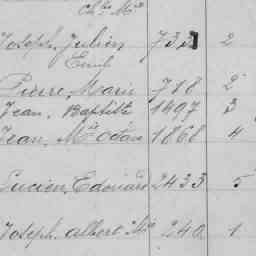 Ch.s M.ie
Joseph, Julien 732 2
Emile
Pierre, Marie 718 2
Jean, Baptiste 1497 3
Jean, M.ie 1868 4
Lucien, Edouard 2433 5
Joseph, albert M.ie 240 1